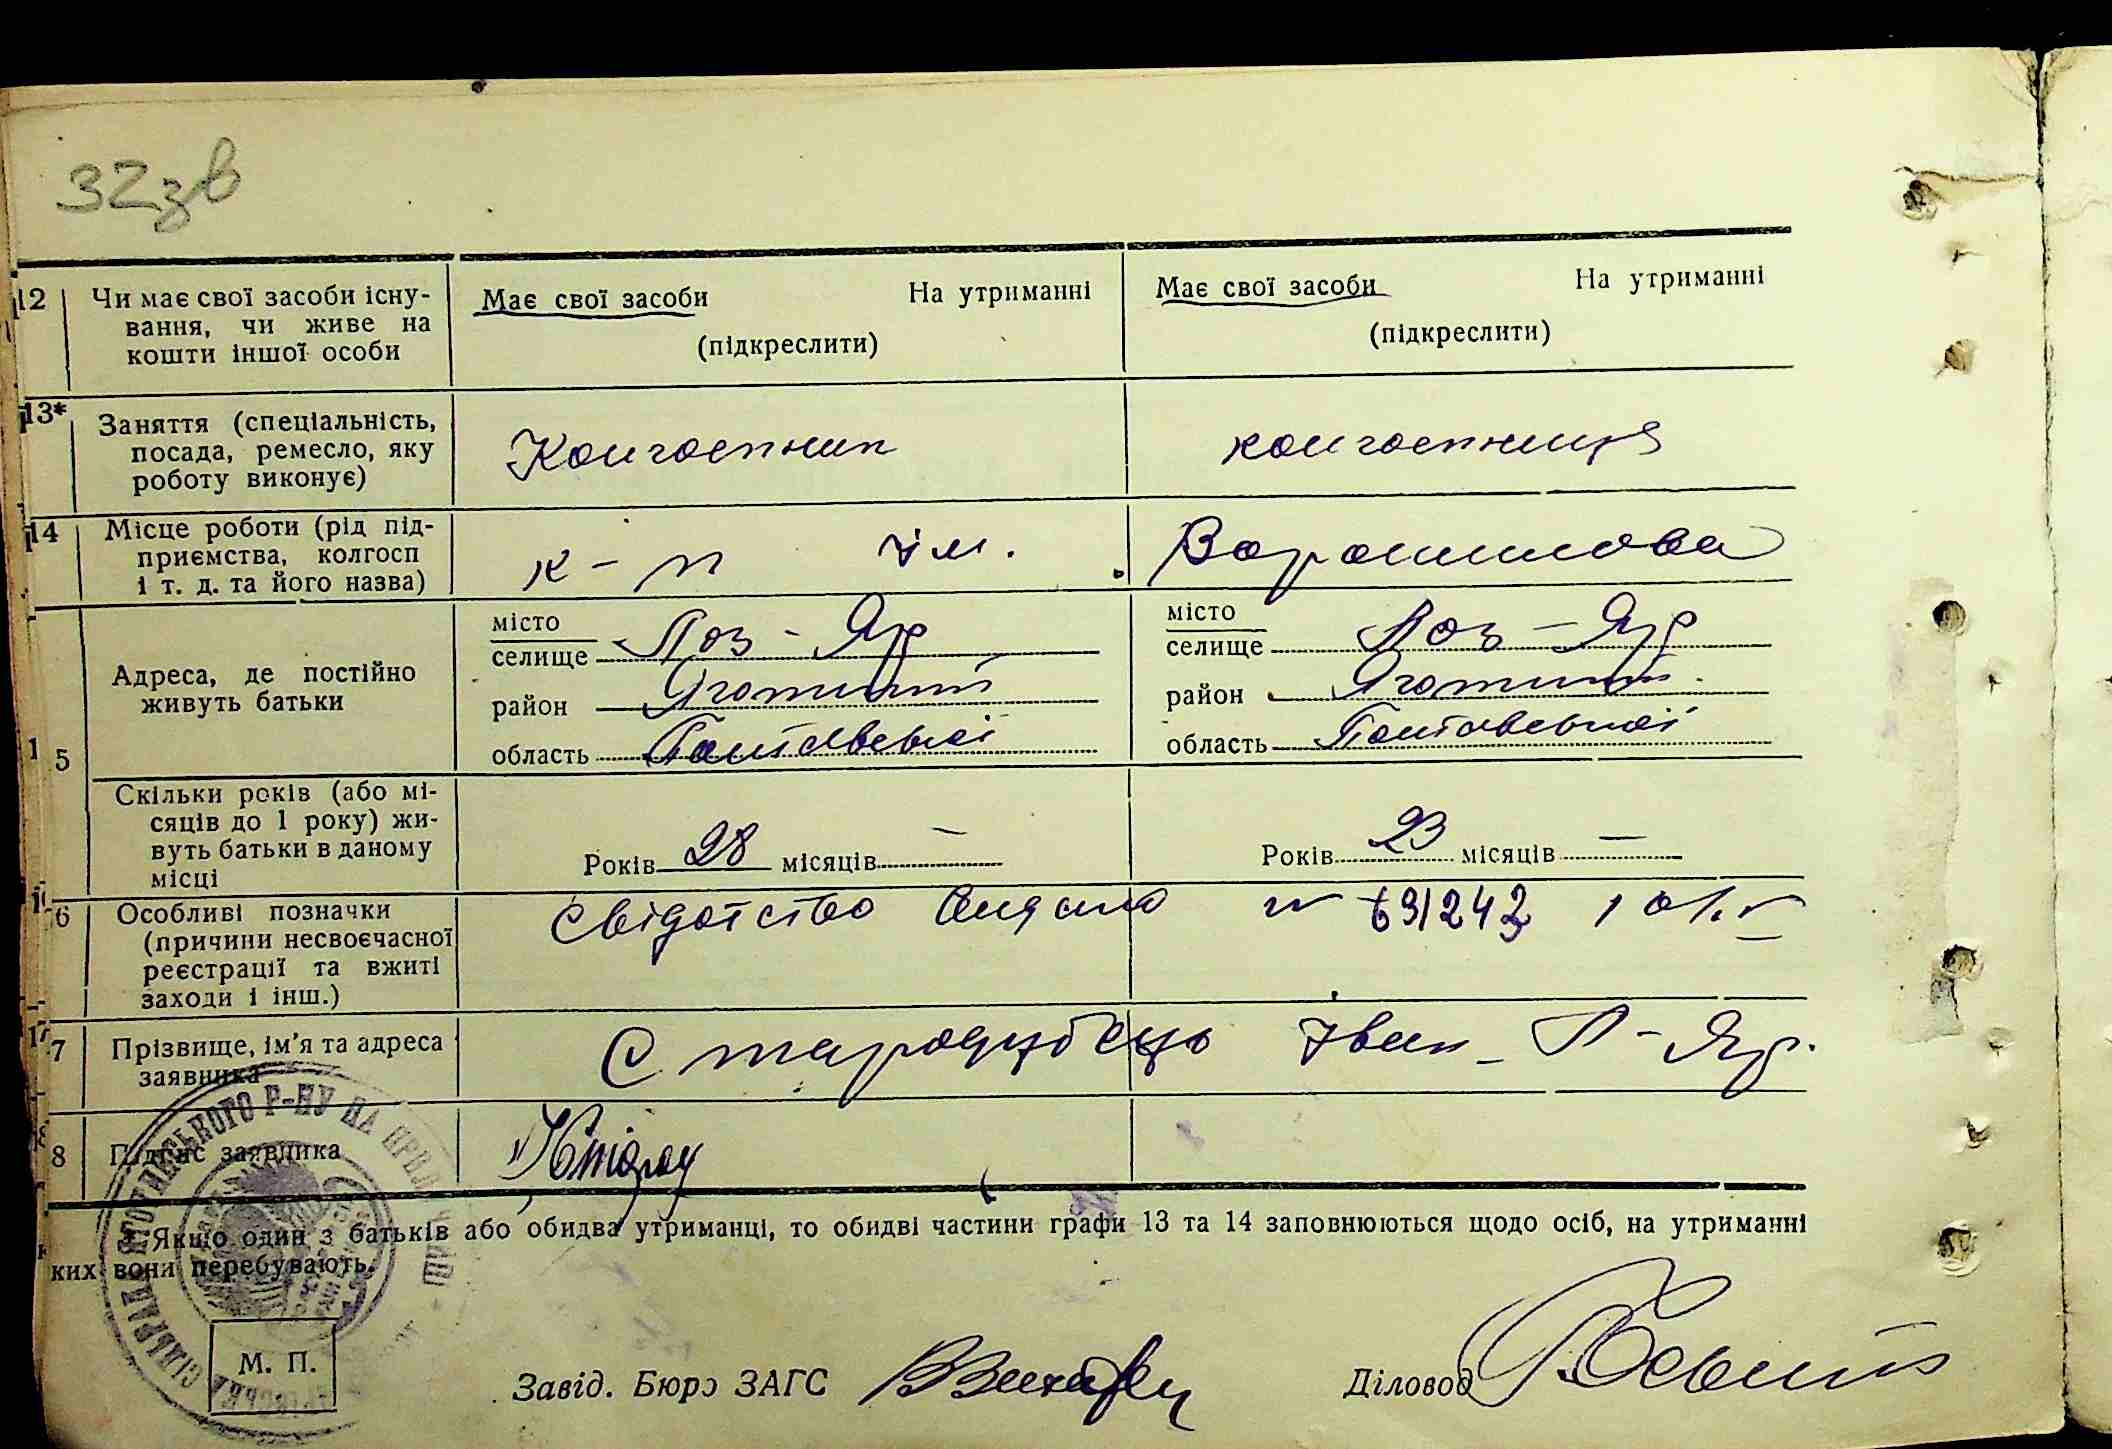 32зв
12 Чи має свої засоби існу- Має свої засоби На утриманні Має свої засоби На утриманні
вання, чи живе на (підкреслити) (підкреслити)
кошти іншої особи
13* Заняття (спеціальність,
посада, ремесло, яку Колгоспник колгоспниця
роботу виконує)
14 Місце роботи (рід під-
приємства, колгосп к-п ім. Ворошилова
і т. д. та його назва)
місто місто
селище Лоз-Яр селище Лоз-Яр
Адреса, де постійно
живуть батьки район Яготинський район Яготинський
15 область Полтавської область Полтавської
Скільки років (або мі-
сяців до 1 року) жи-
вуть батьки в даному Років 28 місяців — Років 23 місяців —
місці
6 Особливі позначки Свідотство видано № 691242
(причини несвоєчасної
реєстрації та вжиті
заходи і інш.)
17 7 Прізвище, ім'я та адреса Стародубець Іван - Л-Яр.
заявника
8 Підпис заявника
* Якщо один з батьків або обидва утриманці, то обидві частини графи 13 та 14 заповнюються щодо осіб, на утриманні
ких вони перебувають.
М. П.
Завід. Бюро ЗАГС Діловод